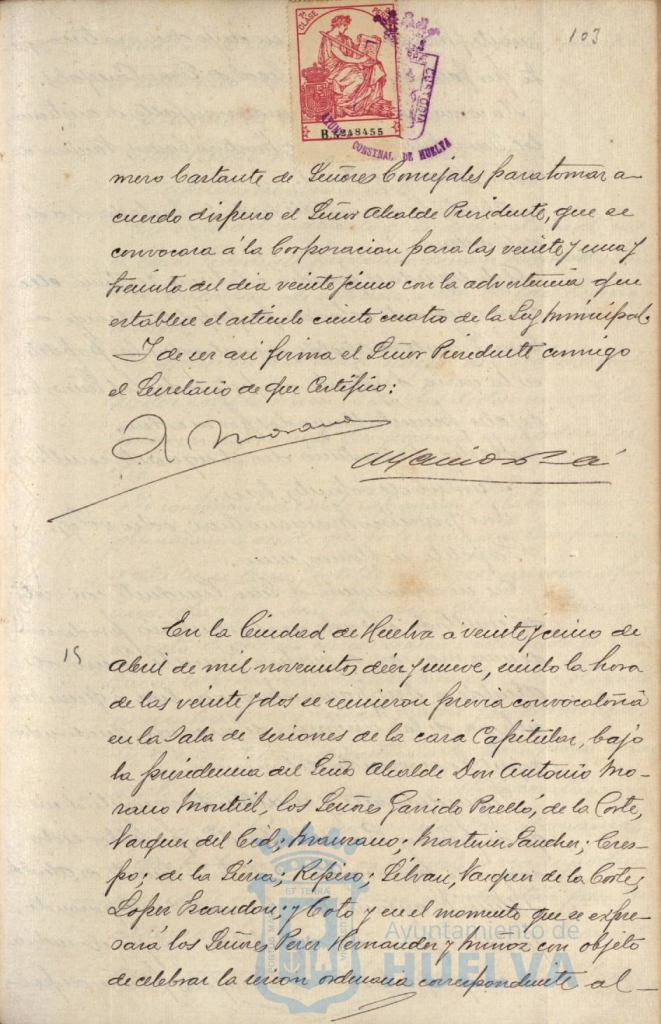 103
7ª CLASE
B.3248455
CUSTODIA
CONSTNAL DE HUELVA
mero bastante de Señores Concejales para tomar a-
cuerdo dispuso el Señor Alcalde Presidente, que se
convocara á la Corporacion para las veinte y una y
treinta del dia veinte y cinco con la advertencia que
establece el articulo ciento cuatro de la Ley Municipal.
Y de ser asi firma el Señor Presidente conmigo
el Secretario de que Certifico:
A. Morano
15
En la Ciudad de Huelva á veinte y cinco de
Abril de mil novecientos diez y nueve, siendo la hora
de las veinte y dos se reunieron previa convocatoria
en la Sala de sesiones de la casa Capitular, bajo
la presidencia del Señor Alcalde Don Antonio Mo-
rano Montiel, los Señores Garrido Perelló, de la Corte,
Vazquez del Cid; Manzano; Martinez Sanchez; Cres-
po; de la Sierra; Répiso; Gélvan, Vazquez de la Corte;
Lopez Escandon; y Coto y en el momento que se expre-
sará los Señores Perez Hernandez y Muñoz con objeto
de celebrar la sesion ordinaria correspondiente al-
Ayuntamiento de
HUELVA